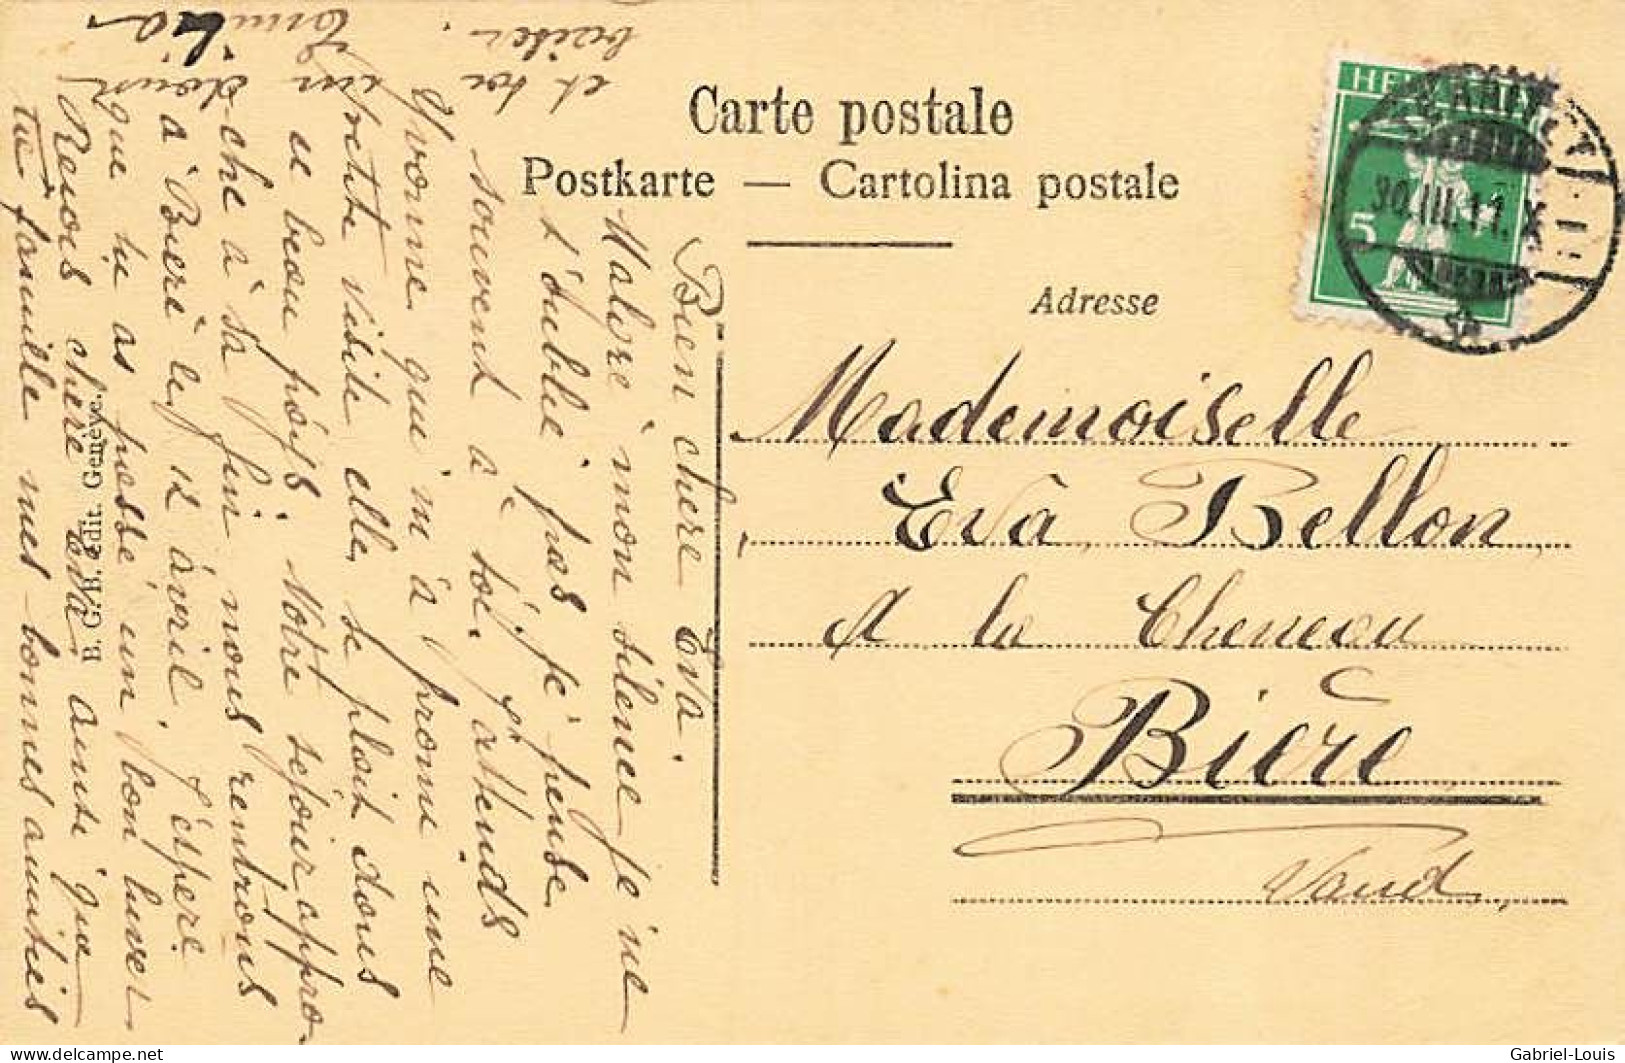 Carte postale
Postkarte — Cartolina postale
Adresse
HELVETIA
5
30.III.11.X
Mademoiselle
Eva Bellon
A la Cheneau
Bière
Vaud
B. G. H. édit. Genève.
Bien chère Eva.
Malgre mon silence je ne
t'oublie pas je pense
souvent à toi. J'attends
Yvonne que m'a promi une
petite visite elle se plait dans
u beau pays. Notre sejour appro-
che à sa fin nous rentrons
à Bière le 12 avril. J'espère
que tu as passé un bon hiver
Revois chère Eva ainsi que
ta famille mes bonnes amitiés
et toi un doux
baiser.
Gabriel-Louis
delcampe.net